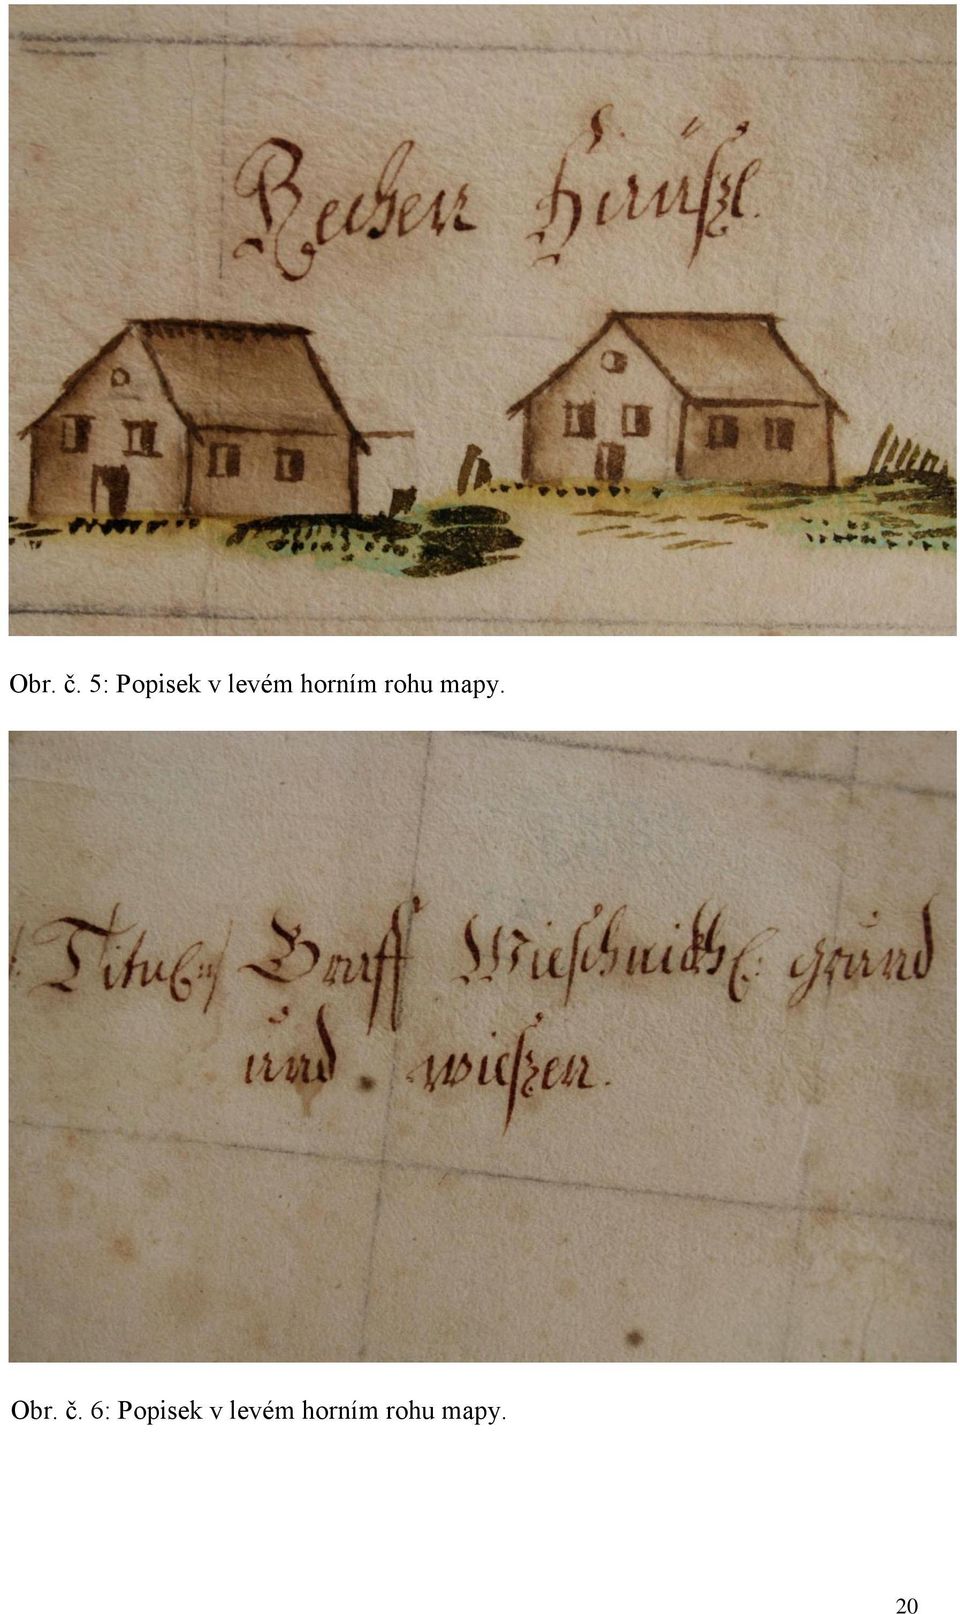 Rechen Haüßl.
Obr. č. 5: Popisek v levém horním rohu mapy.
Graff Wieschnickh: grund
und wießen.
Obr. č. 6: Popisek v levém horním rohu mapy.
20